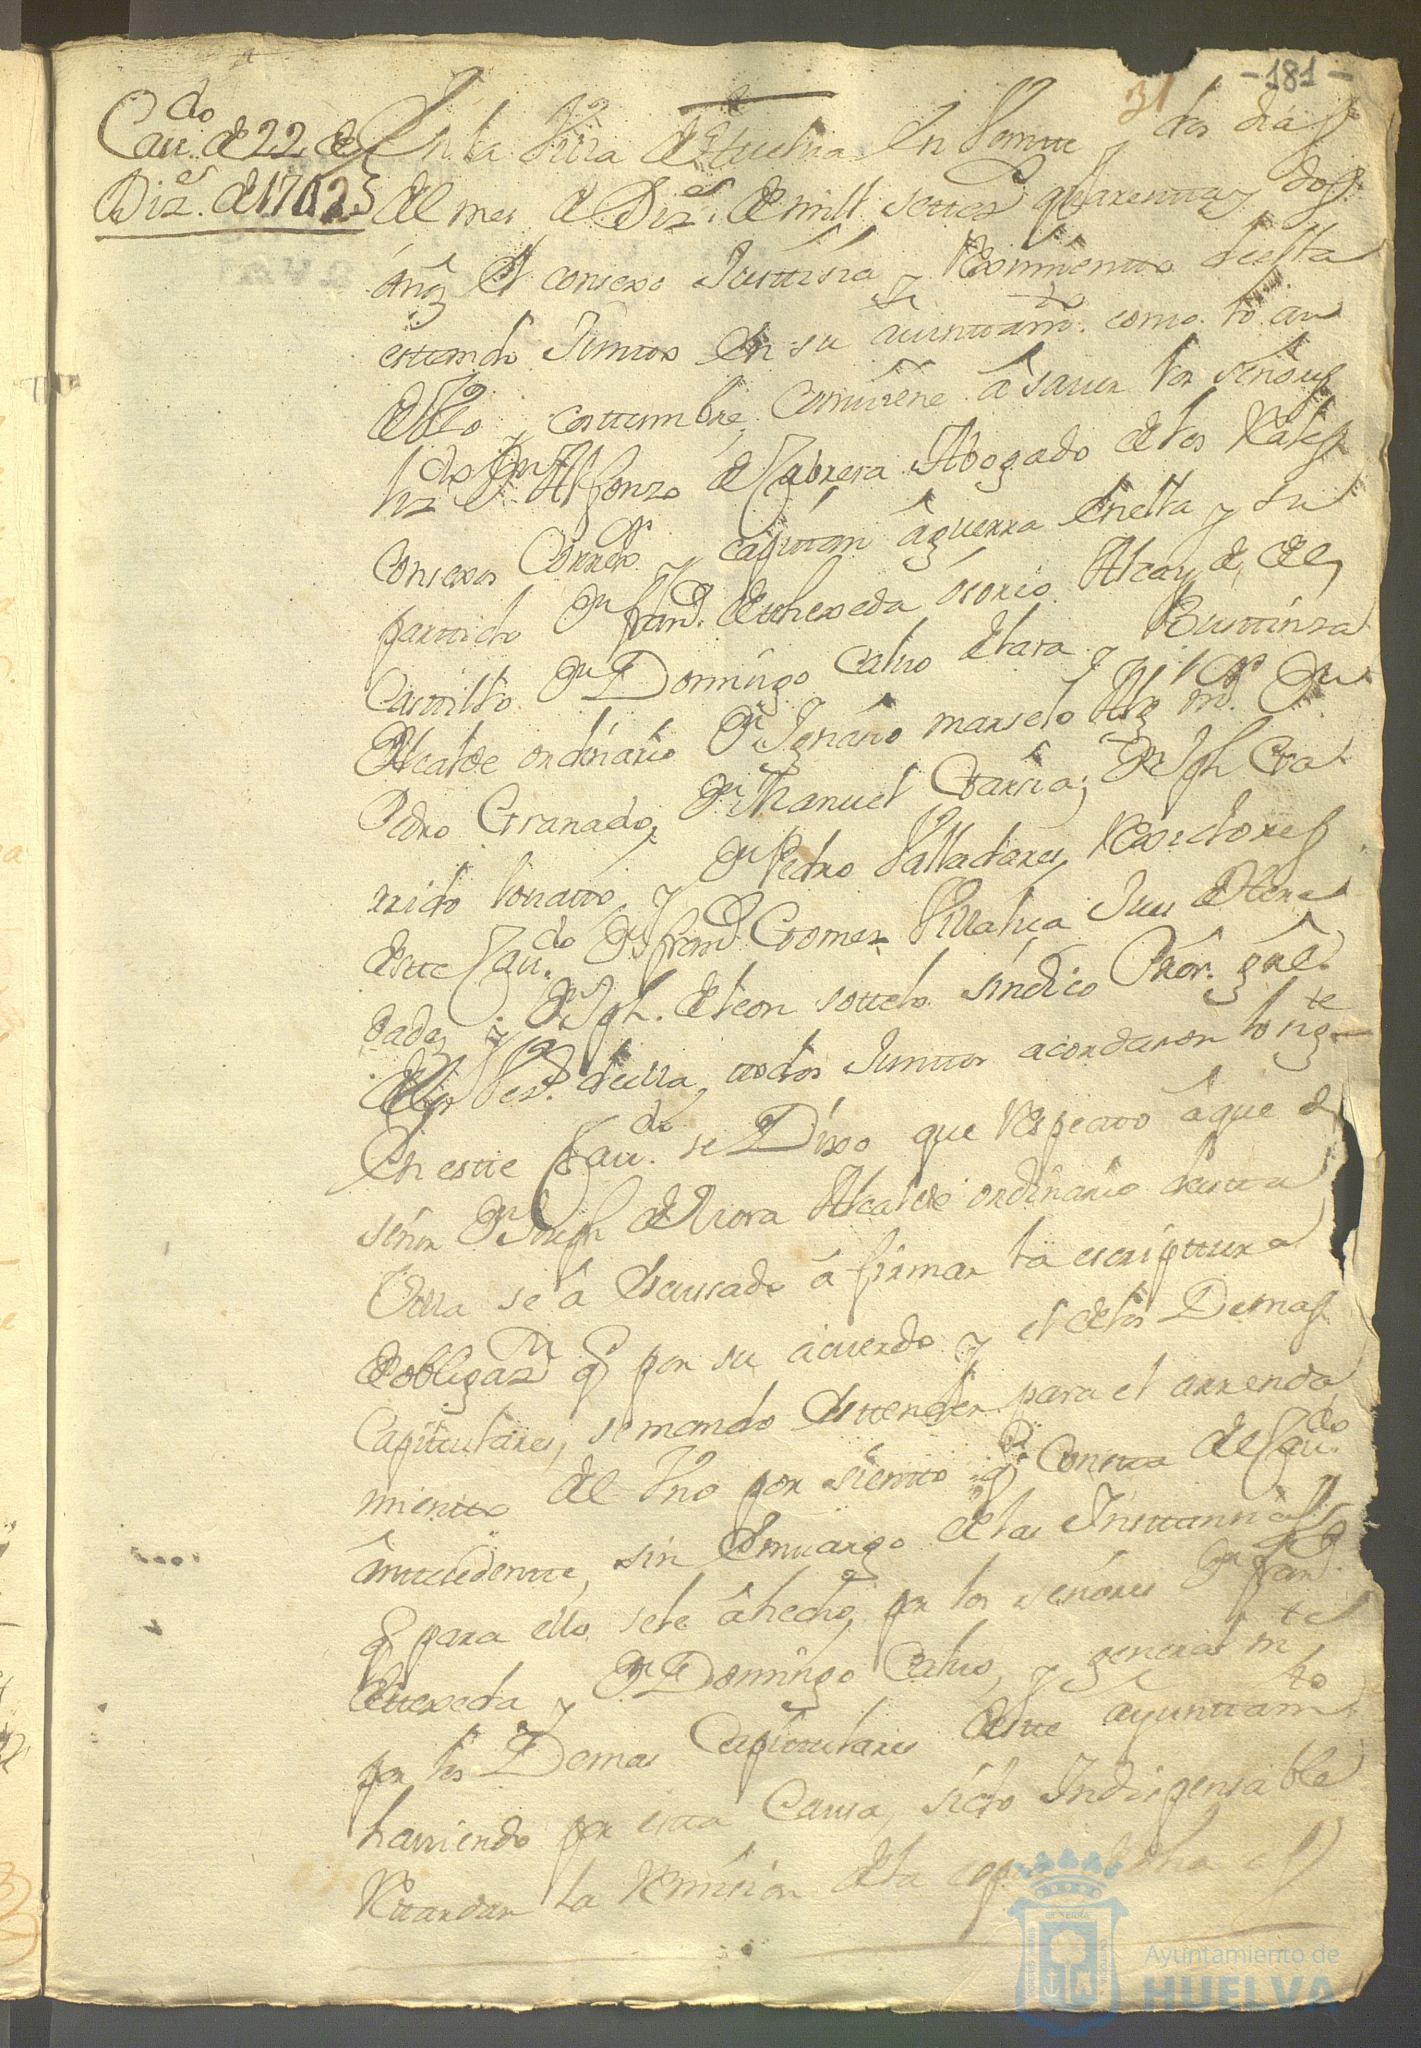 -181-
31
Cau.do de 22 de
Diz.e de 1742
En la Villa de Huelva en Veinte y dos dias
del mes de Diz.e de mill settez.s quarenta y dos
años El consexo Justizia y Reximiento della
estando Juntos En su aiuntam.to como lo an
de Vso y costtumbre, Combiene â sauer los señores
liz.do Dn Alfonzo de Cabrera Abogado de los R.ales
Consexos Correx.or y capittan â guerra Enella y su
parttido Dn fran.co de thexeda osorio Alcayde del
Casttillo Dn Domingo Calvo de lara y Busttinza
Alcalde ordinario Dn Ignazio marselo Alg. m.or Dn
Pedro Granado, Dn Manuel Garzia, Dn Jph Ga-
rrido lonatto, y Dn Pedro Valladares, Rexidores
deste Cau.do Dn fran.co Gomez Villalva Juez de here
dades y Dn Jph. de leon sottelo sindico Pror. gral.
della, todos Junttos acordaron lo sig.te
En estte Cau.do se Dixo que Respecto â que el
señor Dn Joseph de Mora Alcalde ordinario desta
Villa se â Escusado â firmar la escripttura
de obligaz.n q.e por su acuerdo y el delos Demas
Capittulares, se mando Esttender para el arrenda
miento del Vno por siento q.e Consta del Cau.do
Anttecedente, sin Embargo de las Insttancias
q.e para ello sele â hecho, por los señores Dn fran.co
detexeda y Dn Domingo Calvo, y generalm.te
por los Demas Capittulares deste ayunttam.to
hauiendo por esta Causa, sido Indispensable
Retardar la Remision dela copia
Ayuntamiento de
HUELVA